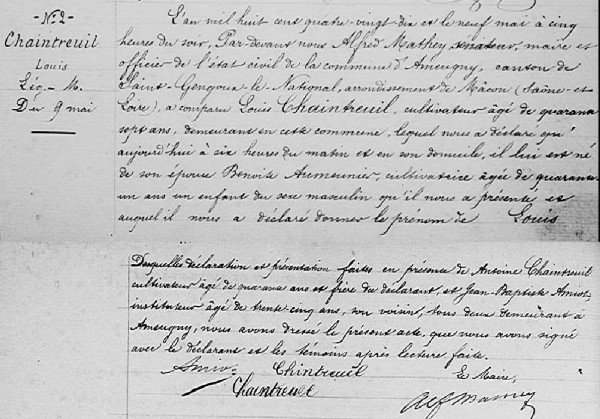 - N° 2 -
Chaintreuil
Louis
Lég. - M.
Du 9 mai
L'an mil huit cent quatre-vingt-dix et le neuf mai à cinq
heures du soir, Par-devant nous Alfred Mathey, sénateur, maire et
officier de l'état civil de la commune d'Ameugny, canton de
Saint-Gengoux-le-National, arrondissement de Mâcon (Saône-et-
Loire), a comparu Louis Chaintreuil, cultivateur âgé de quarante
sept ans, demeurant en cette commune, lequel nous a déclaré qu'
aujourd'hui à six heures du matin et en son domicile, il lui est né
de son épouse Benoite Aumeunier, cultivatrice âgée de quarante-
un ans un enfant du sexe masculin qu'il nous a présenté et
auquel il nous a déclaré donner le prénom de Louis
Desquelles déclaration et présentation faites en présence de Antoine Chaintreuil
cultivateur âgé de quarante ans et frère du déclarant, et Jean-Baptiste Amiot
instituteur âgé de trente-cinq ans, son voisin, tous deux demeurant à
Ameugny, nous avons dressé le présent acte, que nous avons signé
avec le déclarant et les témoins après lecture faite.
Chintreuil Le Maire,
Chaintreuil